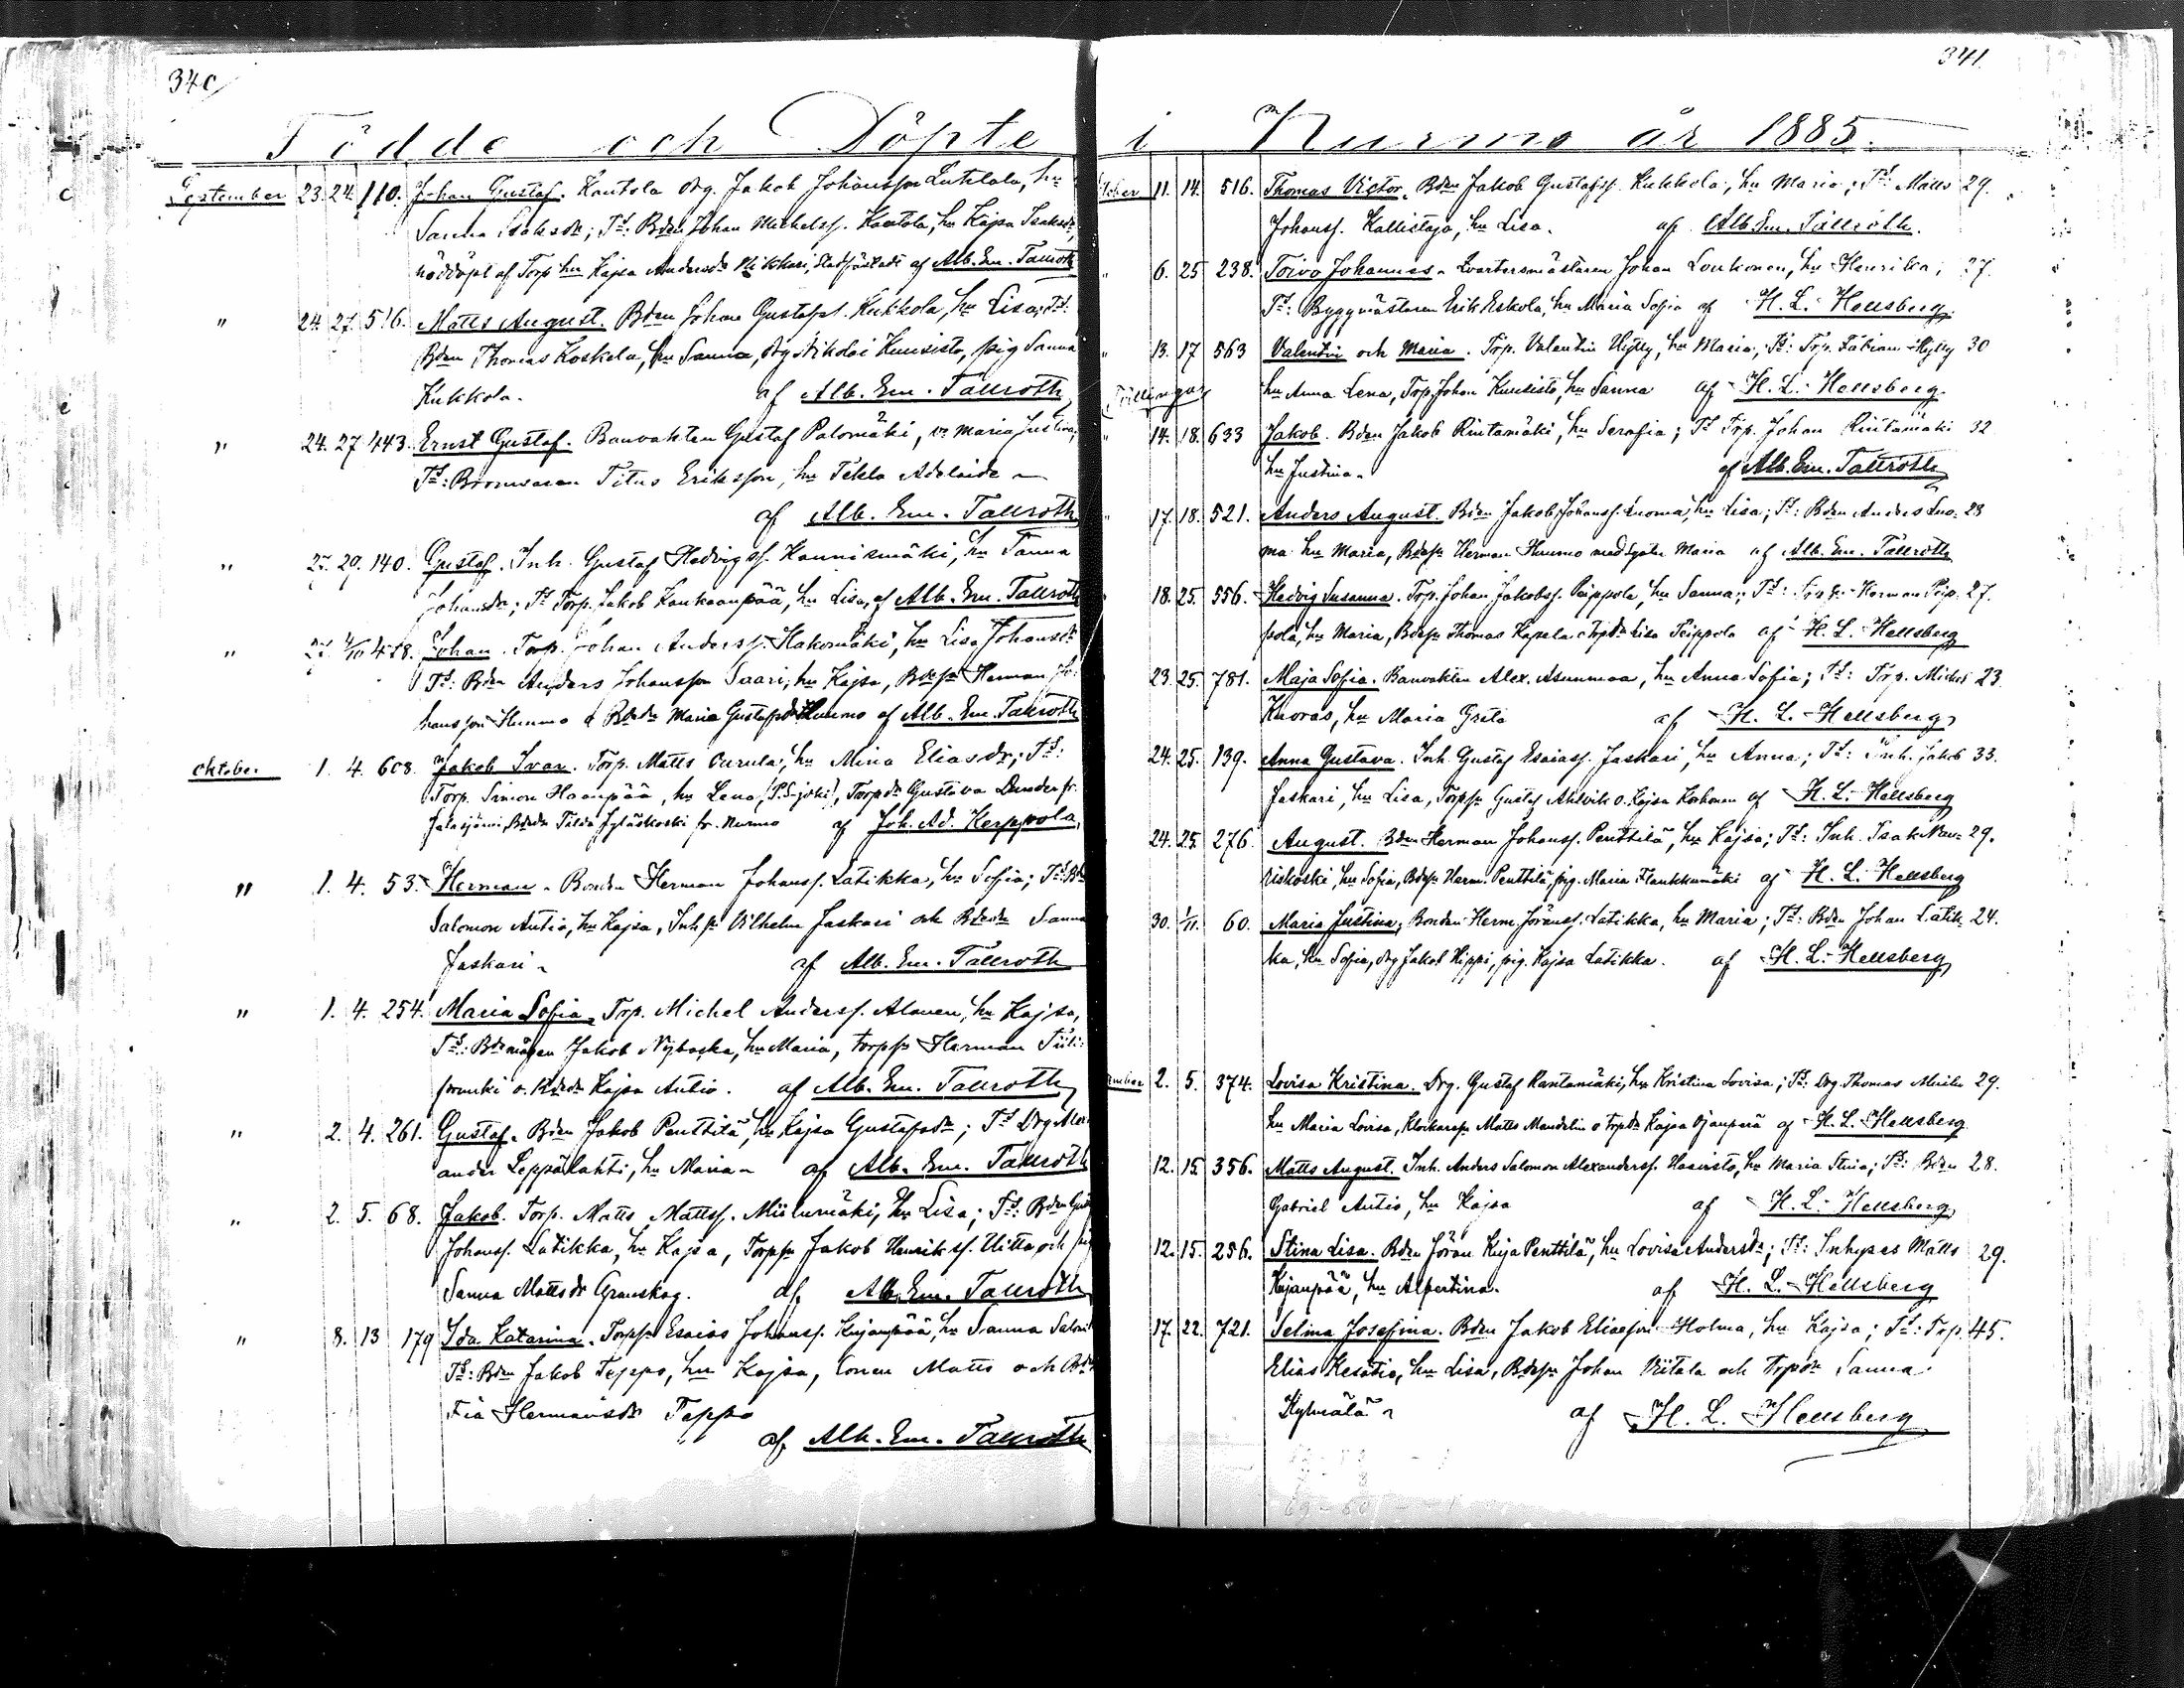 340
Födde och Döpte
September 23. 24. 110. Johan Gustaf. Kantola drg. Jakob Johansson Luhtala, hu
Sanna Isaksdr; Ts: Bden Johan Michelss. Kantola, hu Kajsa Isaksdr,
nöddöpt af Torp. hu Kajsa Andersdr Nikkari, stadfästadt af Alb. Em. Tallroth
" 24. 27. 516. Matts August. Bden Johan Gustafss. Kukkola, hu Lisa; Ts:
Bden Thomas Koskela, hu Sanna, drg Nikolai Kuusisto, pig Sanna
Kukkola. af Alb. Em. Tallroth
" 24. 27 443. Ernst Gustaf. Banvakten Gustaf Palomäki, hu Maria Justina;
Ts: Bromsaren Titus Eriksson, hu Tekla Adelaide
af Alb. Em. Tallroth
" 27. 29. 140. Gustaf. Inh. Gustaf Hedvigss. Kaunismäki, hu Sanna
Johansdr; Ts Torp. Jakob Kankaanpää, hu Lisa, af Alb. Em. Tallroth
" 4/10 478. Johan. Torp. Johan Anderss. Hakomäki, hu Lisa Johansdr
Ts: Bden Anders Johansson Saari, hu Kajsa, Bdesn Herman Jo-
hansson Hunmo o Bdedr Maria Gustafsdr af Alb. Em. Tallroth
Oktober 1. 4. 608. Jakob Ivar. Torp. Matts hu Mina Eliasdr; Ts:
Torp. Simon Haanpää, hu Lena, Torpdr Gustava Dunder fr.
Jalasjärvi, Bdedr Tilda Jyläskoski fr. Nurmo af Joh. Ad. Kerppola
" 1. 4. 53. Herman. Bonden Herman Johanss. Latikka, hu Sofia; Ts: Bde
Salomon Autio, hu Kajsa, Inh sn Vilhelm Jaskari och Bdedr Sanna
Jaskari af Alb. Em. Tallroth
" 1. 4. 254. Maria Sofia. Trp. Michel Anderss. Alanen, hu Kajsa,
Ts: Bdemågen Jakob Nybacka, hu Maria, torpsn Herman Tiili-
o. Bdedr Kajsa Autio. af Alb. Em. Tallroth
" 2. 4. 261. Gustaf. Bden Jakob Penttilä, hu Kajsa Gustafsdr; Ts Drg Alex-
ander Leppälahti, hu Maria af Alb. Em. Tallroth
" 2. 5. 68. Jakob. Torp. Matts Mattss. Miilumäki, hu Lisa; Ts: Bden Gust
Johanss. Latikka, hu Kajsa, Torpsn Jakob Henrikss. Uitto och pig
Sanna Mattsdr Granskog. af Alb. Em. Tallroth
" 8. 13 179 Ida Katarina. Torpsn Esaias Johanss. Kujanpää, hu Sanna
Ts: Bden Jakob Teppo, hu Kajsa, sonen Matts och Bde
Fia Hermansdr Teppo
af Alb. Em. Tallroth
341.
i Nurmo år 1885.
11. 14. 516. Thomas Victor. Bden Jakob Gustafss. Kukkola, hu Maria; Ts: Matts 29.
Johanss. Kallistaja, hu Lisa. af Alb. Em. Tallroth.
" 6. 25 238. Toivo Johannes. Kvartersmästaren Johan Loukonen, hu Henrika; 27.
Ts: Byggmästaren Erik Eskola, hu Maria Sofia af H. L. Hellsberg
" 13. 17 563 Valentin och Maria. Trp. Valentin Hylly, hu Maria; Ts: Trp. Fabian Hylly 30
Tvillingar hu Anna Lena, Trp. Johan Kuusisto, hu Sanna af H. L. Hellsberg
" 14. 18. 633 Jakob. Bden Jakob Rintamäki, hu Serafia; Ts Trp. Johan Rintamäki 32
hu Justina. af Alb. Em. Tallroth
" 17. 18. 521. Anders August. Bden Jakob Johanss. Luoma, hu Lisa; Ts: Bden Anders Luo- 28
ma hu Maria, Bdesn Herman med Maria af Alb. Em. Tallroth
18. 25. 556. Hedvig Susanna. Trp. Johan Jakobss. Peippola, hu Sanna; Ts: Herman Peip- 27.
pola, hu Maria, Bdesn Thomas Kapela o Trpdr Lisa Peippola af H. L. Hellsberg
23. 25. 781. Maja Sofia. Banvakten Alex. Asunmaa, hu Anna Sofia; Ts: Trp. Michel 23
Kuoras, hu Maria Greta af H. L. Hellsberg
24. 25. 139. Anna Gustava. Inh. Gustaf Esaiass. Jaskari, hu Anna; Ts: Inh. Jakob 33.
Jaskari, hu Lisa, Torpsn Gustaf Ahlvik o. Kajsa Korhonen af H. L. Hellsberg
24. 25. 276. August. Bden Herman Johanss. Penttilä, hu Kajsa; Ts: Inh. Isak 29.
hu Sofia, Bdesn Herm. Penttilä, pig. Maria Haukkumäki af H. L. Hellsberg
30. 1/11. 60. Maria Justina. Bonden Herm. Johanss. Latikka, hu Maria; Ts: Bden Johan Latik- 24.
ka, hu Sofia, drg Jakob Hippi, pig. Kajsa Latikka. af H. L. Hellsberg
2. 5. 374. Lovisa Kristina. Drg. Gustaf Rantamäki, hu Kristina Lovisa; Ts. Drg. Thomas 29.
hu Maria Lovisa, Klockaresn Matts Mandelin o Trpdr Kajsa Ojanperä af H. L. Hellsberg
12. 15. 356. Matts August. Inh. Anders Salomon Alexanderss. Haavisto, hu Maria Stina; Ts: Bden 28.
Gabriel Autio, hu Kajsa af H. L. Hellsberg
12. 15. 256. Stina Lisa. Bden Jöran Kuja Penttilä, hu Lovisa Andersdr; Ts: Inhyses Matts 29.
Kujanpää, hu Alpertina. af H. L. Hellsberg
17. 22. 721. Selima Josefina. Bden Jakob Eliasson Holma, hu Kajsa; Ts: Trp. 45.
Elias Kesätie, hu Lisa, Bdesn Johan Viitala och Trpdr Sanna
Kylmälä af H. L. Hellsberg